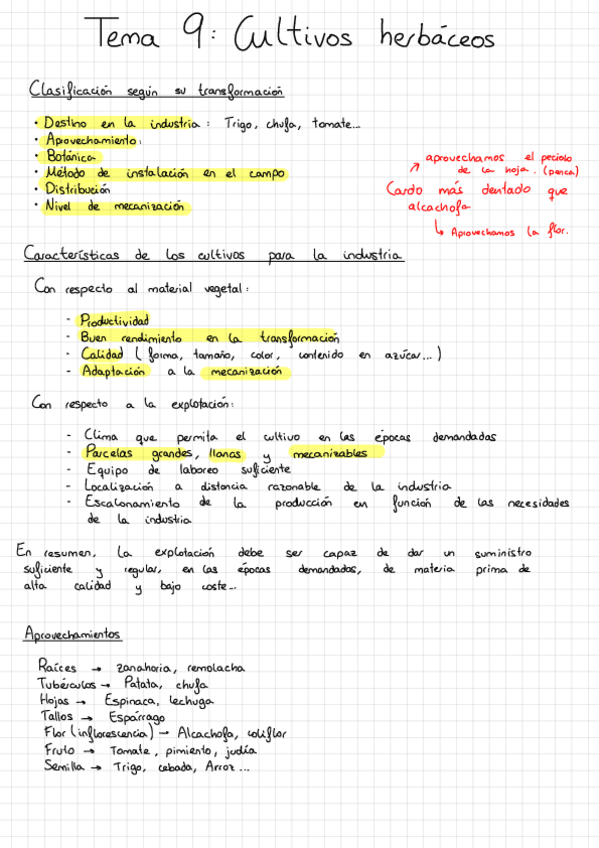 Tema 9: Cultivos herbáceos
Clasificación según su transformación
• Destino en la industria: Trigo, chufa, tomate...
• Aprovechamiento:
• Botánica
• Método de instalación en el campo
• Distribución
• Nivel de mecanización
aprovechamos el peciolo
de la hoja. (penca)
Cardo más dentado que
alcachofa
↳ Aprovechamos la flor.
Características de los cultivos para la industria
Con respecto al material vegetal:
- Productividad
- Buen rendimiento en la transformación
- Calidad (forma, tamaño, color, contenido en azúcar...)
- Adaptación a la mecanización
Con respecto a la explotación:
- Clima que permita el cultivo en las épocas demandadas
- Parcelas grandes, llanas y mecanizables
- Equipo de laboreo suficiente
- Localización a distancia razonable de la industria
- Escalonamiento de la producción en función de las necesidades
de la industria
En resumen, la explotación debe ser capaz de dar un suministro
suficiente y regular, en las épocas demandadas, de materia prima de
alta calidad y bajo coste...
Aprovechamientos
Raíces → zanahoria, remolacha
Tubérculos → Patata, chufa
Hojas → Espinaca, lechuga
Tallos → Espárrago
Flor (inflorescencia) → Alcachofa, coliflor
Fruto → Tomate, pimiento, judía
Semilla → Trigo, cebada, Arroz...